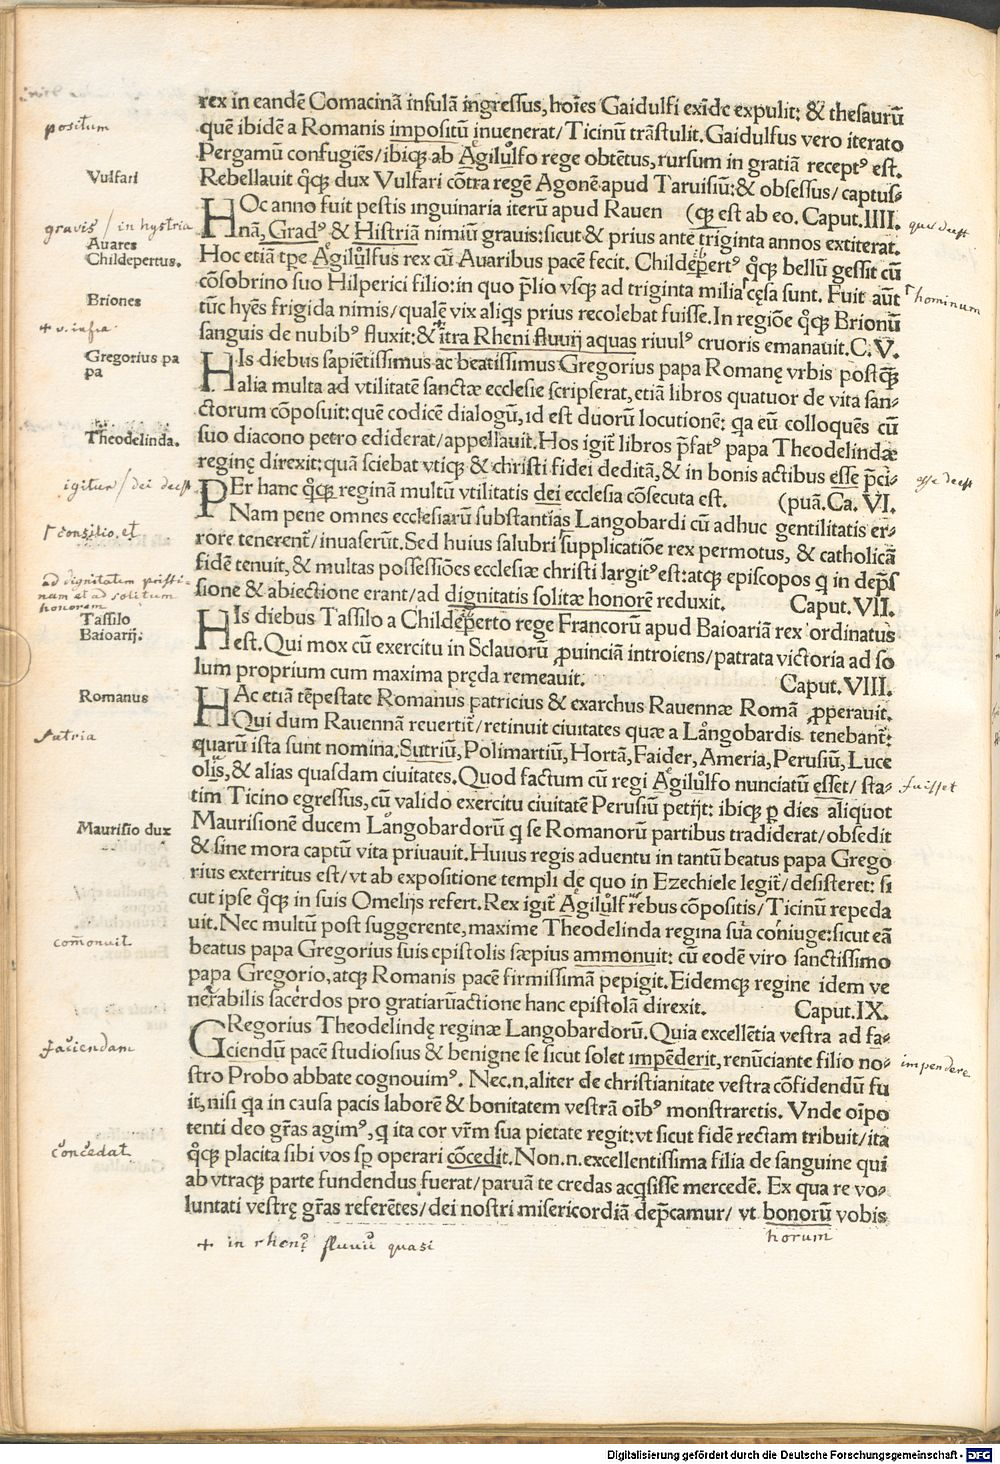 rex in eandē Comacinā insulā ingressus, hoīes Gaidulfi exīde expulit: & thesaurū
positum
quē ibidē a Romanis impositū inuenerat/ Ticinū trāstulit. Gaidulfus vero iterato
Pergamū confugiēs/ ibiqꝫ ab Agilulfo rege obtētus, rursum in gratiā receptꝰ est.
Vulfari
Rebellauit q̊qꝫ dux Vulfari cōtra regē Agonē apud Taruisiū: & obsessus/ captus-
HOc anno fuit pestis inguinaria iterū apud Rauen (qꝫ est ab eo. Caput. IIII.
gravis / in hystria
nā, Gradꝰ & Histriā nimiū grauis: sicut & prius ante triginta annos extiterat.
que deest
Auares
Hoc etiā tpe Agilulfus rex cū Avaribus pacē fecit. Childep̄ertꝰ q̊qꝫ bellū gessit cū
Childepertus.
cōsobrino suo Hilperici filio: in quo p̄lio vsqꝫ ad triginta milia cęsa sunt. Fuit aūt
hominum
Briones
tūc hyēs frigida nimis/ qualē vix aliqs prius recolebat fuisse. In regiōe q̊qꝫ Brionū
+ v. infra.
sanguis de nubibꝰ fluxit: & ītra Rheni fluuij aquas riuulꝰ cruoris emanauit. C. V.
Gregorius pa
pa
HIs diebus sapiētissimus ac beatissimus Gregorius papa Romanę vrbis postqꝫ
alia multa ad vtilitatē sanctæ ecclesie scripserat, etiā libros quatuor de vita san-
ctorum cōposuit: quē codicē dialogū, id est duorū locutionē: qa eū colloquēs cū
Theodelinda.
suo diacono petro ediderat/ appellauit. Hos igit̄ libros p̄fatꝰ papa Theodelindæ
reginę direxit: quā sciebat vticqꝫ & christi fidei deditā, & in bonis actibus esse p̄ci-
esse deest
igitur / dei deest
PEr hanc q̊qꝫ reginā multū vtilitatis dei ecclesia cōsecuta est. (puā. Ca. VI.
Nam pene omnes ecclesiarū substantias Langobardi cū adhuc gentilitatis er-
consilio. et
rore tenerent̄/ inuaserūt. Sed huius salubri supplicatiōe rex permotus, & catholicā
fidē tenuit, & multas possessiōes ecclesiæ christi largitꝰ est: atqꝫ episcopos q in dep̄s
ad dignitatem pristi-
nam et ad solitum
honorem
sione & abiectione erant/ ad dignitatis solitæ honorē reduxit. Caput. VII.
Tassilo
HIs diebus Tassilo a Childep̄erto rege Francorū apud Baioariā rex ordinatus
Baioarij.
est. Qui mox cū exercitu in Sclauorū ꝓuinciā introiens/ patrata victoria ad so
lum proprium cum maxima pręda remeauit. Caput. VIII.
Romanus
HAc etiā tēpestate Romanus patricius & exarchus Rauennæ Romā ꝓperauit.
Qui dum Rauennā reuertit̄/ retinuit ciuitates quæ a Langobardis tenebant̄:
Sutria
quarū ista sunt nomina. Sutriū, Polimartiū, Hortā, Faider, Ameria, Perusiū, Luce
olis, & alias quasdam ciuitates. Quod factum cū regi Agilulfo nunciatū esset/ sta-
fuisset
tim Ticino egressus, cū valido exercitu ciuitatē Perusiū petijt: ibiqꝫ p dies aliquot
Maurisio dux
Maurisionē ducem Langobardorū q se Romanorū partibus tradiderat/ obsedit
& sine mora captū vita priuauit. Huius regis aduentu in tantū beatus papa Grego
rius exterritus est/ vt ab expositione templi de quo in Ezechiele legit̄/ desisteret: si
cut ipse q̊qꝫ in suis Omelijs refert. Rex igit̄ Agilulf rebus cōpositis/ Ticinū repeda
uit. Nec multū post suggerente, maxime Theodelinda regina sua coniuge: sicut eā
com̄onuit
beatus papa Gregorius suis epistolis sæpius ammonuit: cū eodē viro sanctissimo
papa Gregorio, atqꝫ Romanis pacē firmissimā pepigit. Eidemqꝫ regine idem ve
nerabilis sacerdos pro gratiarūactione hanc epistolā direxit. Caput. IX.
GRegorius Theodelindę reginæ Langobardorū. Quia excellētia vestra ad fa-
faciendam
ciendū pacē studiosius & benigne se sicut solet impēderit, renūciante filio no-
impendere
stro Probo abbate cognouimꝰ. Nec.n. aliter de christianitate vestra cōfidendū fu
it, nisi qa in causa pacis laborē & bonitatem vestrā oībꝰ monstraretis. Vnde oīpo
tenti deo gr̄as agimꝰ, q ita cor vr̄m sua pietate regit: vt sicut fidē rectam tribuit/ ita
concedat
q̊qꝫ placita sibi vos sp̄ operari cōcedit. Non.n. excellentissima filia de sanguine qui
ab vtracqꝫ parte fundendus fuerat/ paruā te credas acq̇sisse mercedē. Ex qua re vo-
luntati vestrę gr̄as referētes/ dei nostri misericordiā dep̄camur/ vt bonorū vobis
horum
+ in rheni fluuiū quasi
Digitalisierung gefördert durch die Deutsche Forschungsgemeinschaft - DFG